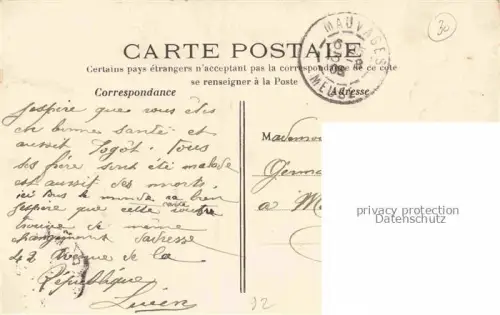 30
MAUVAGES
MEUSE
CARTE POSTALE
Certains pays étrangers n'acceptant pas la correspondance de ce côté
se renseigner à la Poste
Correspondance
Adresse
J'espère que vous êtes
en bonne santé et
aussit Togot. Tous
ses frère sont été malade
est aussit des morts.
ici tous le monde va bien
J'espère que cette carte
trouve de même
changement d'adresse
42 Avenue de la
République
Lucien
Mademoi
Germa
a M
privacy protection
Datenschutz
92